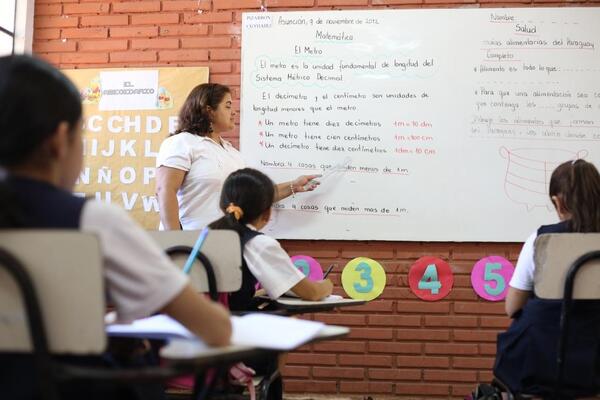 PIZARRÓN COTIDIANO
Asunción, 9 de noviembre de 2012
Matemática
El Metro
El metro es la unidad fundamental de longitud del
Sistema Métrico Decimal.
El decímetro y el centímetro son unidades de
longitud menores que el metro.
* Un metro tiene diez decímetros 1m = 10 dm
* Un metro tiene cien centímetros 1m = 100 cm
* Un decímetro tiene diez centímetros 1dm = 10 cm
Nombra 4 cosas que miden menos de 1m
4 cosas que miden mas de 1m
Nombre:
Salud
alimentarias del Paraguay
Completo
Alimento es todo lo que
Para que una alimentación sea
que contenga los grupos de
los alimentos que
EL ABECEDARIO
BCDE
IJKL
ÑOP
3 4 5